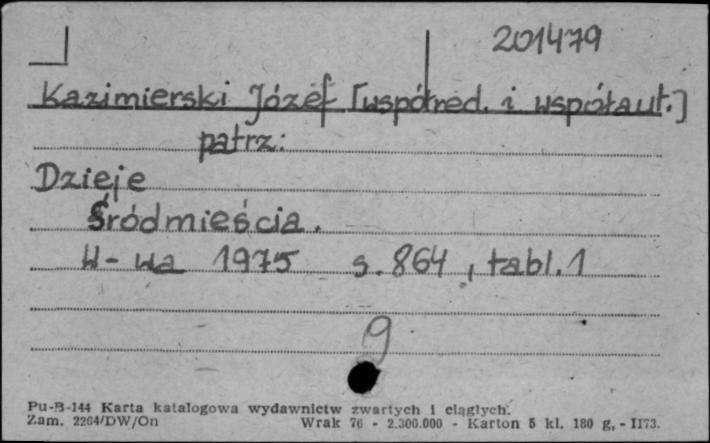 201479
Kazimierski Józef [współred. i współaut.]
patrz:
Dzieje
Śródmieścia.
W-wa 1975 s. 864, tabl. 1
9
Pu-B-144 Karta katalogowa wydawnictw zwartych i ciągłych.
Zam. 2264/DW/On Wrak 76 - 2.300.000 - Karton 5 kl. 180 g, - II73.